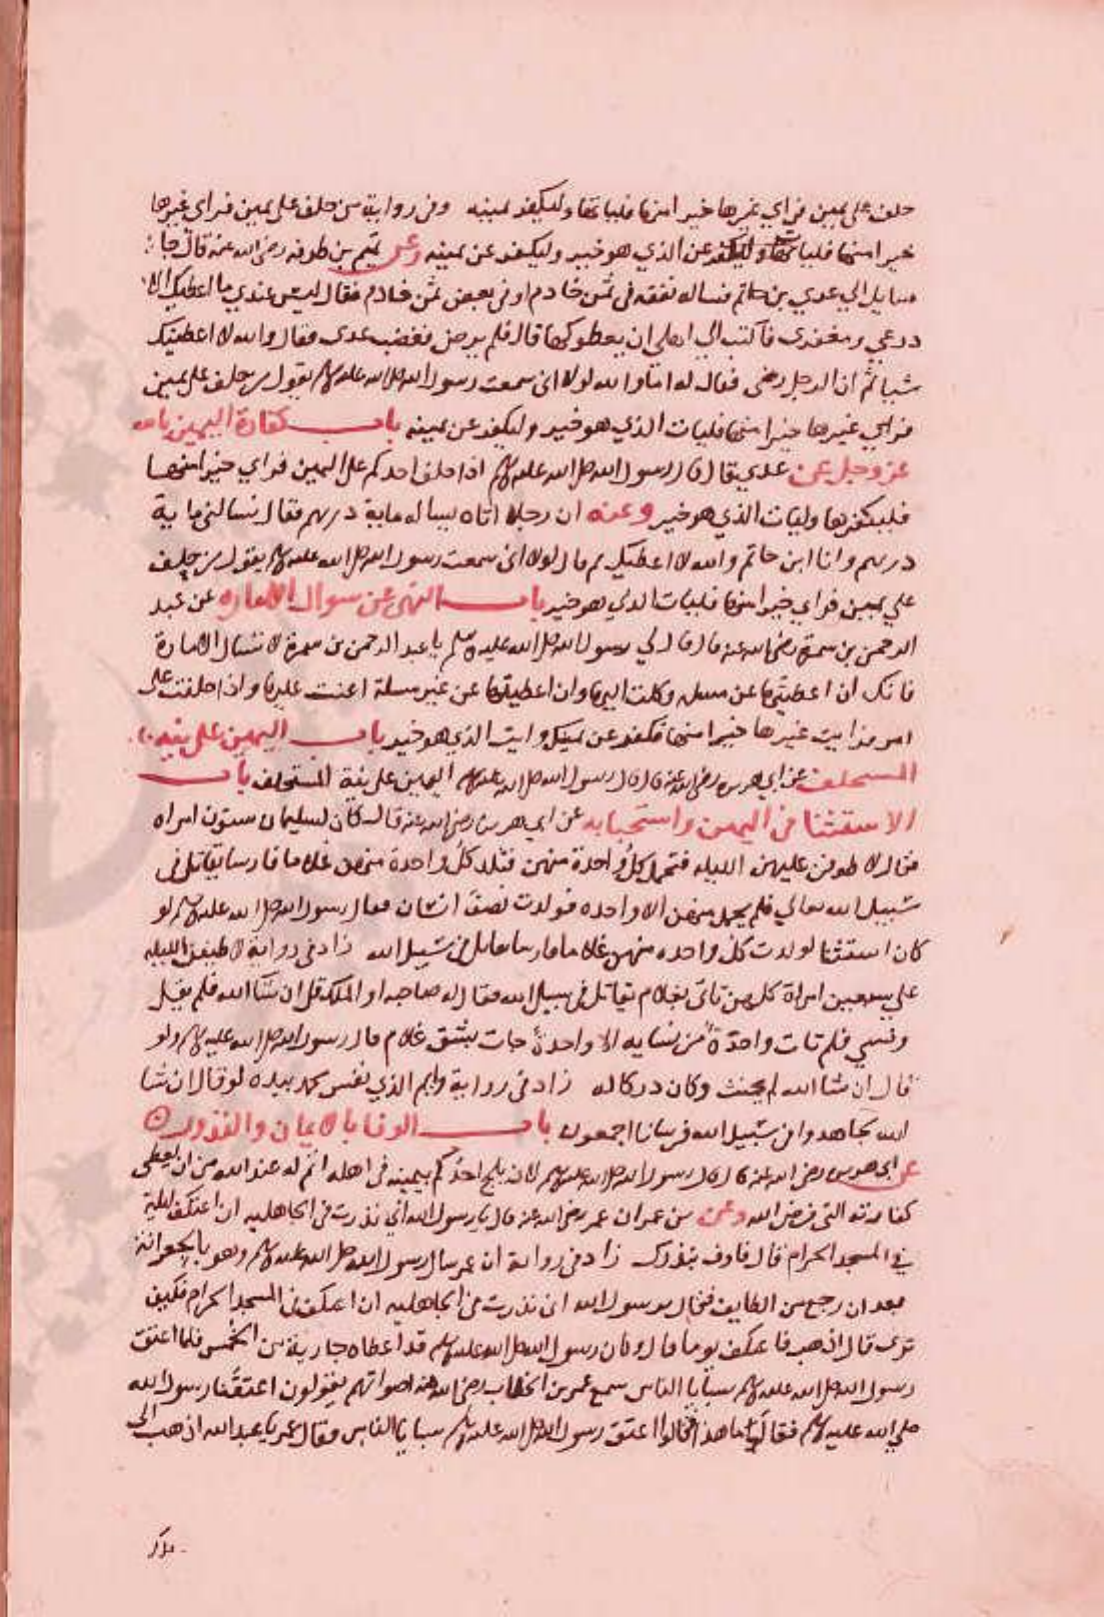 حلف على يمين فراي غيرها خيرا منها فلياتها وليكفر يمينه وفي رواية من حلف على يمين فراي غيرها
خيرا منها فليات وليكفر عن الذي هو خير وليكفر عن يمينه وعن تميم بن طرفه رضي الله عنه قال جا
سايل الي عدي بن حاتم فساله نفقه في ثمن خادم او في بعض ثمن خادم فقال ليس عندي ما اعطيك الا
درعي ومغفري فاكتب الي اهلي ان يعطوكها قال فلم يرض فغضب عدي فقال والله لا اعطيتك
شيا ثم ان الرجل رضي فقال له اما والله لولا اني سمعت رسول الله صلى الله عليه وسلم يقول من حلف على يمين
فراي غيرها خيرا منها فليات الذي هو خير وليكفر عن يمينه باب كفارة اليمين بالله
عز وجل عن عدي قال قال رسول الله صلى الله عليه وسلم اذا حلف احدكم على اليمين فراي خيرا منها
فليكفرها وليات الذي هو خير وعنه ان رجلا اتاه يساله ماية درهم فقال تسالني ماية
درهم وانا ابن حاتم والله لا اعطيك ثم قال لولا اني سمعت رسول الله صلى الله عليه وسلم يقول من حلف
علي يمين فراي خيرا منها فليات الذي هو خير باب النهي عن سوال الاماره عن عبد
الرحمن بن سمرة رضي الله عنه قال قال لي رسول الله صلى الله عليه وسلم يا عبد الرحمن بن سمرة لا تسال الامارة
فانك ان اعطيتها عن مسله وكلت اليها وان اعطيتها عن غير مسلة اعنت عليها واذا حلفت على
امر فرايت غيرها خيرا منها فكفر عن يمينك وايت الذي هو خير باب اليمين على نيه
المستحلف عن ابي هريره رضي الله عنه قال قال رسول الله صلى الله عليه وسلم اليمين على نية المستحلف باب
الاستثنا في اليمين واستحبابه عن ابي هريرة رضي الله عنه قال كان لسليمان ستون امراه
فقال لاطوفن عليهن الليله فتحمل كل واحدة منهن فتلد كل واحدة منهن غلاما فارسا يقاتل في
سبيل الله تعالي فلم يحمل منهن الا واحده فولدت نصف انسان فقال رسول الله صلى الله عليه وسلم لو
كان استثنا لولدت كل واحده منهن غلاما فارسا يقاتل في سبيل الله زاد في رواية لاطيفن الليله
علي سبعين امراة كلهن تاتي بغلام يقاتل في سبيل الله فقال له صاحبه او الملك قل ان شا الله فلم يقل
ونسي فلم تات واحدة من نسايه الا واحدة جات بشق غلام قال رسول الله صلى الله عليه وسلم ولو
قال ان شا الله لم يحنث وكان دركا له زاد في رواية وايم الذي نفس محمد بيده لو قال ان شا
الله لجاهدوا في سبيل الله فرسانا اجمعون باب الوفا بالايمان والنذور
عن ابي هريره رضي الله عنه قال قال رسول الله صلى الله عليه وسلم لان يلج احدكم بيمينه في اهله اثم له عند الله من ان يعطي
كفارته التي فرض الله وعن عمر رضي الله عنه قال يا رسول الله اني نذرت في الجاهليه ان اعتكف ليلة
في المسجد الحرام قال فاوف بنذرك زاد في رواية ان عمر سال رسول الله صلى الله عليه وسلم وهو بالجعرانة
بعد ان رجع من الطايف فقال يرسول الله اني نذرت في الجاهليه ان اعتكف في المسجد الحرام فكيف
ترى قال اذهب فاعتكف يوما قال وكان رسول الله صلى الله عليه وسلم قد اعطاه جارية من الخمس فلما اعتق
رسول الله صلى الله عليه وسلم سبايا الناس سمع عمر بن الخطاب رضي الله عنه اصواتهم يقولون اعتقنا رسول الله
صلي الله عليه وسلم فقال ما هذا قالوا اعتق رسول الله صلى الله عليه وسلم سبايا الناس فقال عمر يا عبد الله اذهب الي